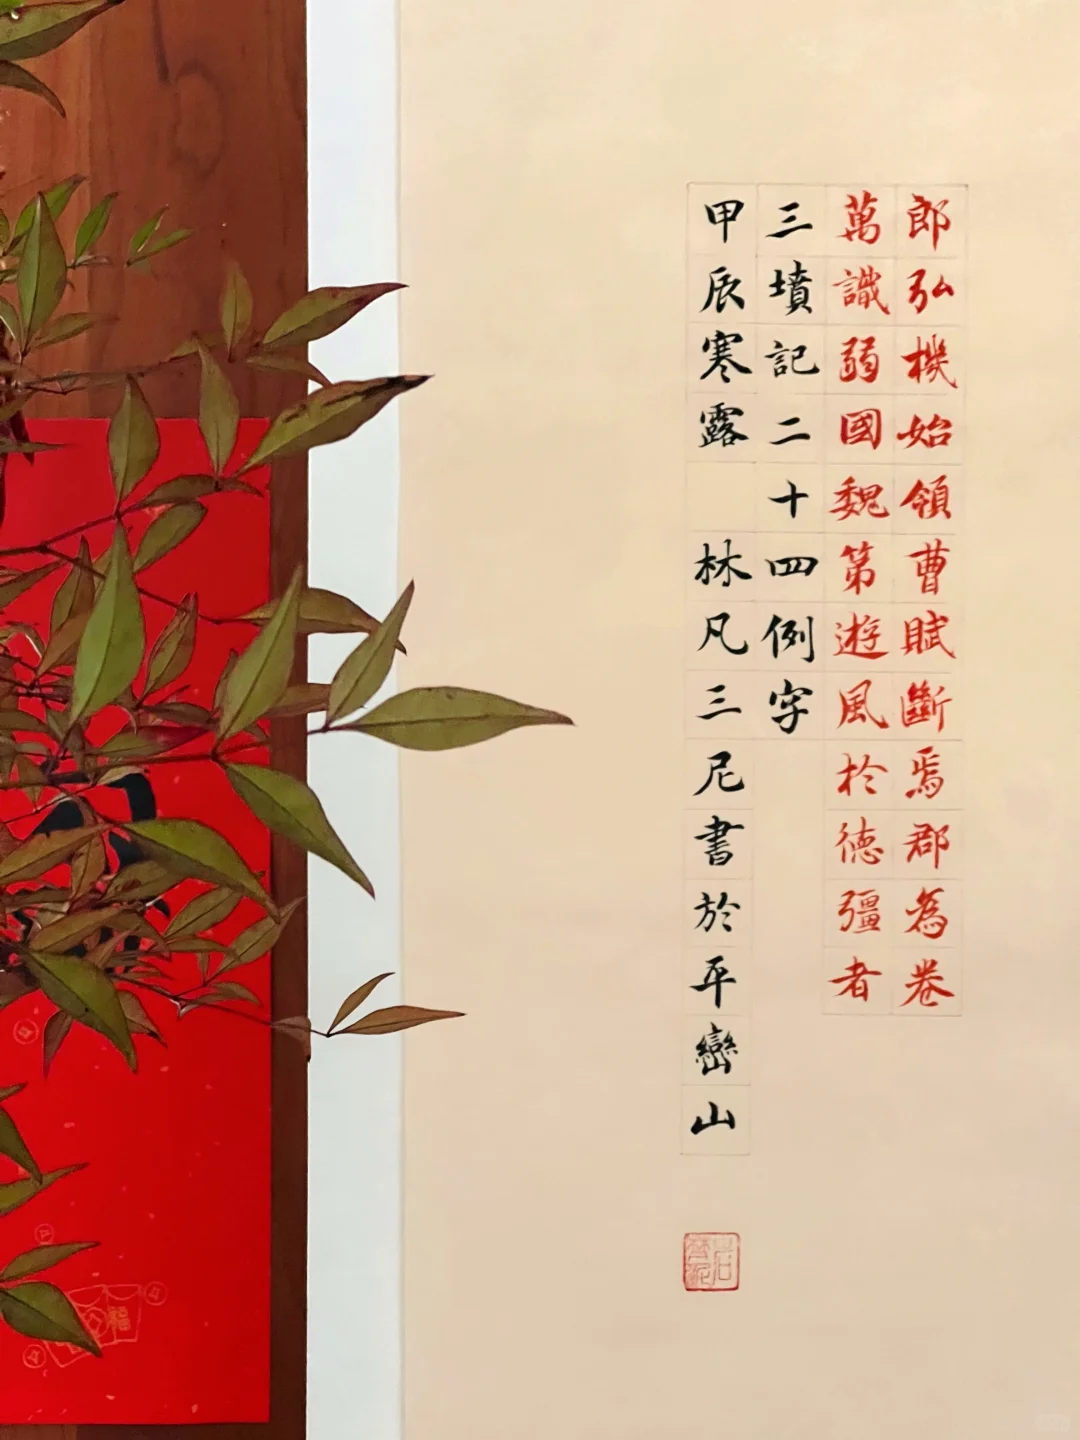 郎弘機始領曹賦斷焉郡為卷
萬識弱國魏第遊風於德彊者
三墳記二十四例字
甲辰寒露 林凡三尼書於平巒山
福